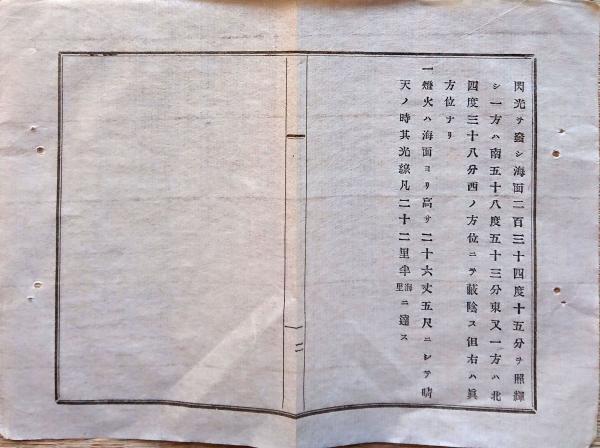 閃光ヲ發シ海面二百三十四度十五分ヲ照輝
シ一方ハ南五十八度五十三分東又一方ハ北
四度三十八分西ノ方位ニテ蔽陰ス但右ハ眞
方位ナリ
一燈火ハ海面ヨリ高サ二十六丈五尺ニシテ晴
天ノ時其光線凡二十二里半海里ニ達ス
二